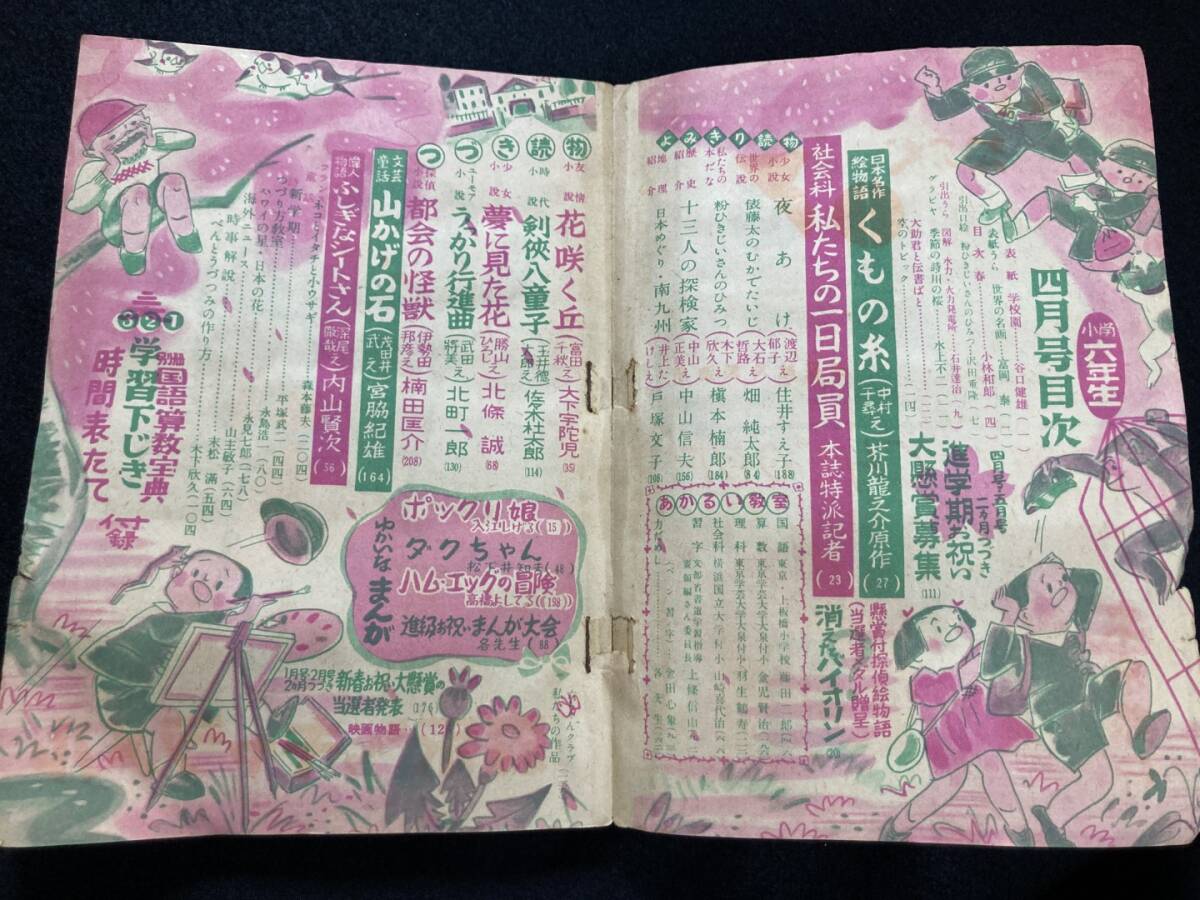 小学六年生
四月号目次
表紙 学校園……谷口健雄(一)
表紙うら 世界の名画……富岡 泰(二)
目次 春……小林和郎(四)
引出口絵 粉ひきじいさんのひみつ…沢田重隆(七)
引出うら 図解 水力・火力発電所……石井達治(九)
グラビヤ 季節の詩川の桜……水上不二(一一)
大助君と伝書ばと
空のトピック……(一四)
四月号・五月号
二ヵ月つづき
進学期お祝い
大懸賞募集
(111)
日本名作
絵物語
くもの糸
(中村千尋え)
芥川龍之介原作
(27)
懸賞付探偵絵物語
(当選者メダル贈呈)
消えたバイオリン
(20)
社会科
私たちの一日局員
本誌特派記者
(23)
よみきり読物
少女小説 夜あけ(渡辺郁子え)住井すえ子(188)
世界の伝説 俵藤太のむかでたいじ(大石哲路え)畑 純太郎(84)
私たちの本だな 粉ひきじいさんのひみつ(木下欣久え)槇本楠郎(184)
歴史紹介 十三人の探検家(中山正美え)中山信夫(156)
地理紹介 日本めぐり・南九州(井上たけしえ)戸塚文子(106)
あかるい教室
国語 東京・上板橋小学校 藤田二郎
算数 東京学芸大学大泉付小 金児賢治
理科 東京学芸大学大泉付小 羽生鶴寿
社会科 横浜国立大学付小 山崎喜代治
習字 文部省書道学習指導要領編さん委員長 上條信山
(ペン習字) 金田心象
力だめし 各先生
つづき読物
友情小説 花咲く丘(富田千秋え)大下宇陀児
時代小説 剣俠八童子(玉井徳太郎え)佐木杜太郎(114)
少女小説 夢に見た花(勝山ひろしえ)北條 誠(68)
ユーモア小説 うっかり行進曲(武田将美え)北町一郎(130)
探偵小説 都会の怪獣(伊勢田邦彦え)楠田匡介(208)
文芸童話
山かげの石(茂田井武え)宮脇紀雄(164)
偉人物語
ふしぎなシートさん(深尾徹哉え)内山賢次(36)
ネコとイタチと小ウサギ……森本藤夫(二〇四)
新学期……平塚武二(四四)
つづり方教室
ハワイの星・日本の花……永島浩一(八〇)
海外ニュース……永見七郎(七八)
……山主敏子(六四)
時事解説……末松 満(五四)
べんとうづつみの作り方……木下欣久(一〇四)
ゆかいなまんが
ポックリ娘
入江しげる(15)
ダクちゃん
松下井知夫(48)
ハム・エッグの冒険
高橋よしてる(198)
進級お祝いまんが大会
各先生(88)
1月号・2月号
2カ月つづき
新春お祝い大懸賞の
当選者発表
(176)
映画物語
私たちの作品
三大付録
1 国語算数宝典
2 学習下じき
3 時間表たて